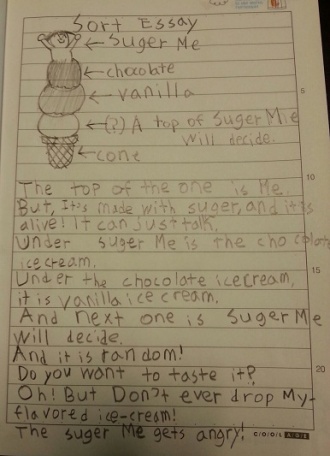 Sort Essay
Suger Me
chocolate
vanilla
(?) A top of Suger Me
Will decide.
cone
5
10
The top of the one is Me.
But, It's made with suger, and it is
alive! It can Just talk.
Under suger Me is the chocolate
icecream.
Under the chocolate icecream,
it is vanilla ice cream.
15
And next one is Suger Me
Will decide.
And it is random!
Do you want to taste it?
20
Oh! But Don't ever drop My-
flavored ice-cream!
The suger Me gets angry!